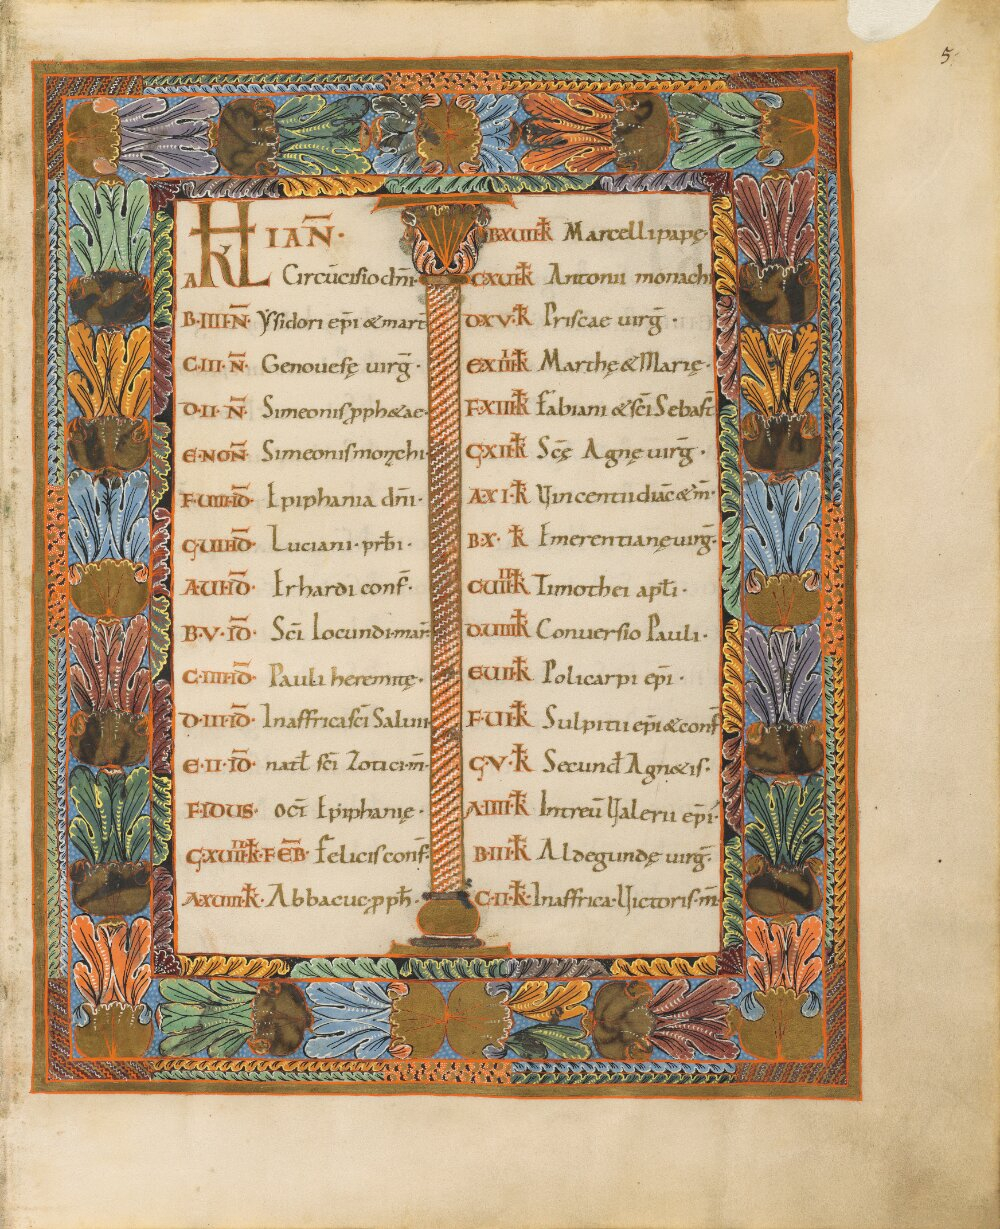 5
KL IAN̅·
A Circu̅cisio dn̅i·
B·IIII·N̅· Ysidori ep̅i & mart̅
C·III·N̅· Genouefę uirg̅·
D·II·N̅· Simeonis pph & ae·
E·NON̅ Simeonis monchi·
F·VIII·ID̅· Epiphania dn̅i·
G·VII·ID̅· Luciani·prb̅i·
A·VI·ID̅· Erhardi conf̅·
B·V·ID̅· Sc̅i Iocundi·mar̅
C·IIII·ID̅· Pauli heremitę·
D·III·ID̅· Inaffrica sc̅i Saluii
E·II·ID̅· natl̅ sc̅i Zotici·m̅·
F·IDUS· Oct̅ Epiphanię·
G·XVIIII·K̅·FEB̅· Felicis conf̅·
A·XVIII·K̅· Abbacuc pph̅·
B·XVII·K̅ Marcelli papę·
C·XVI·K̅ Antonii monachi
D·XV·K̅ Priscae uirg̅·
E·XIIII·K̅ Marthę & Marię·
F·XIII·K̅ Fabiani & sc̅i Sebast̅
G·XII·K̅ Sc̅ę Agnę uirg̅·
A·XI·K̅ Vincentii diac̅ & m̅·
B·X·K̅ Emerentianę uirg̅·
C·VIIII·K̅ Timothei apl̅i·
D·VIII·K̅ Conuersio Pauli·
E·VII·K̅ Policarpi ep̅i·
F·VI·K̅ Sulpitii ep̅i & conf̅
G·V·K̅ Secund̅ Agnetis·
A·IIII·K̅ Intreu̅ Valerii ep̅i·
B·III·K̅ Aldegundę uirg̅·
C·II·K̅· Inaffrica·Victoris·m̅